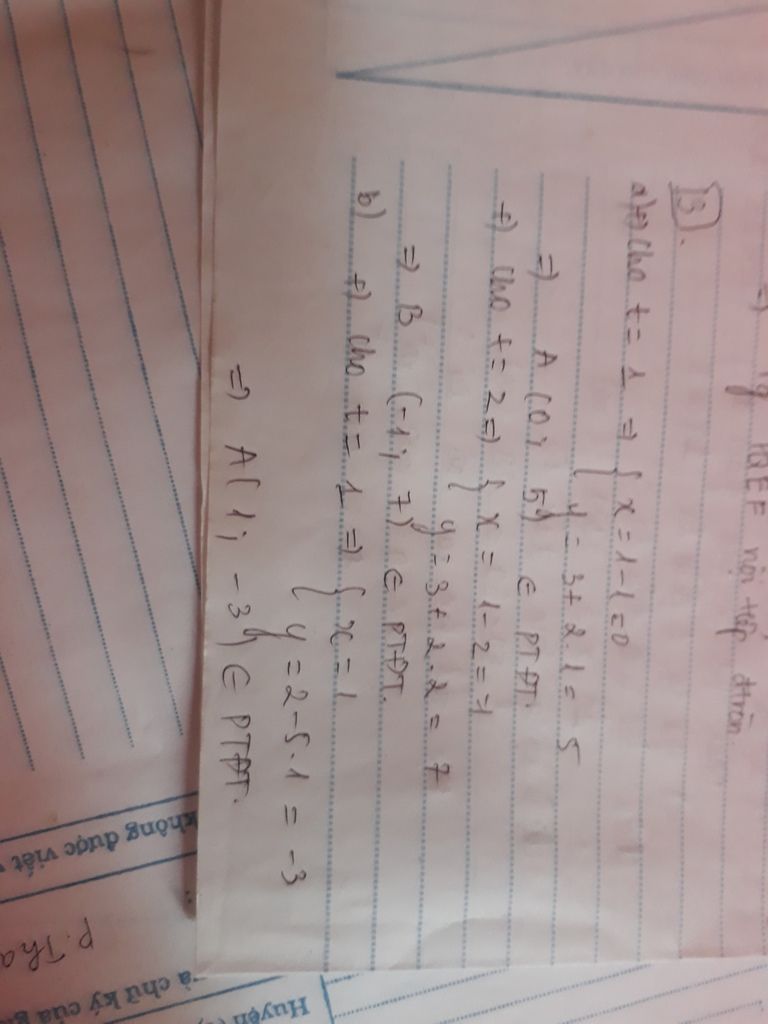 =) Tg PQEF nội tiếp đtròn.
13.
a) +) Cho t = 1 =) { x = 1 - 1 = 0
y = 3 + 2.1 = 5
=) A (0; 5) ∈ PTĐT.
+) Cho t = 2 =) { x = 1 - 2 = -1
y = 3 + 2.2 = 7
=) B (-1; 7) ∈ PTĐT.
b) +) Cho t = 1 =) { x = 1
y = 2 - 5.1 = -3
=) A (1; -3) ∈ PTĐT.
không được viết
P. Tha
và chữ ký của g
Huyện